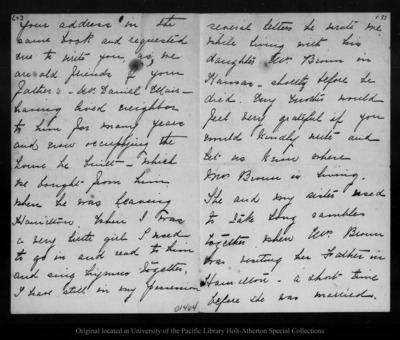 your address in the
same book and requested
me to write you, as we
are old friends of your
father's - Mr. Daniel Muir -
having lived neighbor
to him for many years
and now occupying the
home he built - which
we bought from him
when he was leaving
Hamilton. When I was
a very little girl I used
to go in and read to him
and sing hymns together.
I have still in my possession
several letters he wrote me
while living with his
daughter Mrs. Brown in
Kansas - shortly before he
died. My mother would
feel very grateful if you
would kindly write and
let us know where
Mrs Brown is living.
She and my sister used
to take long rambles
together, when Mrs. Brown
was visiting her Father in
Hamilton - a short time
before she was married.
01404
Original located at University of the Pacific Library Holt-Atherton Special Collections